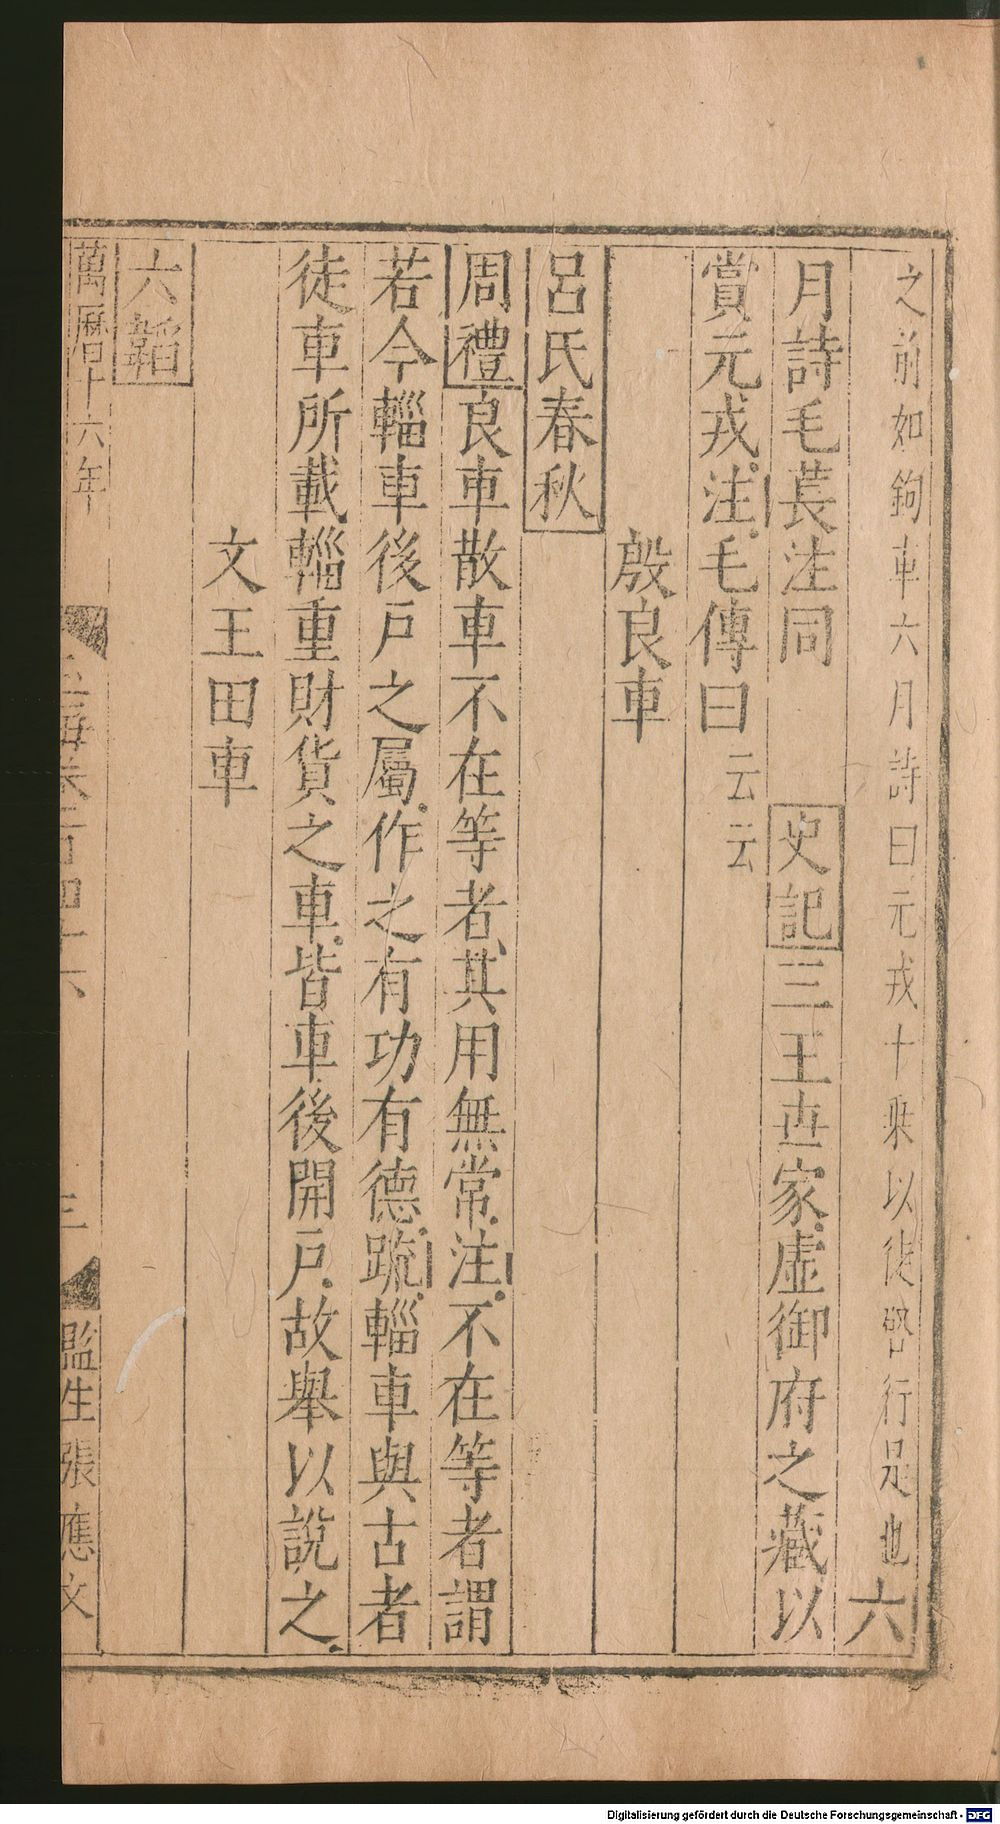 之前如鉤車六月詩曰元戎十乘以徒警行是也六
月詩毛萇注同　史記三王世家虛御府之藏以
賞元戎注毛傳曰云云
殷良車
呂氏春秋
周禮良車散車不在等者其用無常注不在等者謂
若今輜車後戶之屬作之有功有德疏輜車與古者
徒車所載輜重財貨之車皆車後開戶故舉以說之
文王田車
六韜
萬曆十六年　海卷百四十六　三　監生張應文
Digitalisierung gefördert durch die Deutsche Forschungsgemeinschaft - DFG